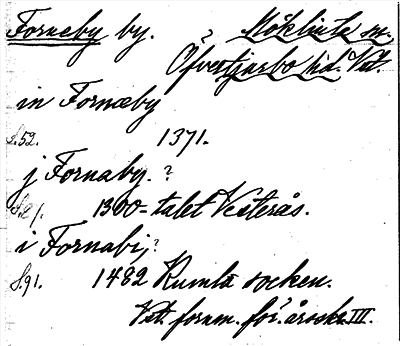 Forneby by. Möklinta sn.
Öfvertjurbo hd. Vst.
in Fornæby
s.52. 1371.
j Fornaby. ?
s.21. 1300-talet Vesterås.
i Fornabij ?
s.91. 1482 Rumla socken.
Vst. fornm. för. årsskr. III.